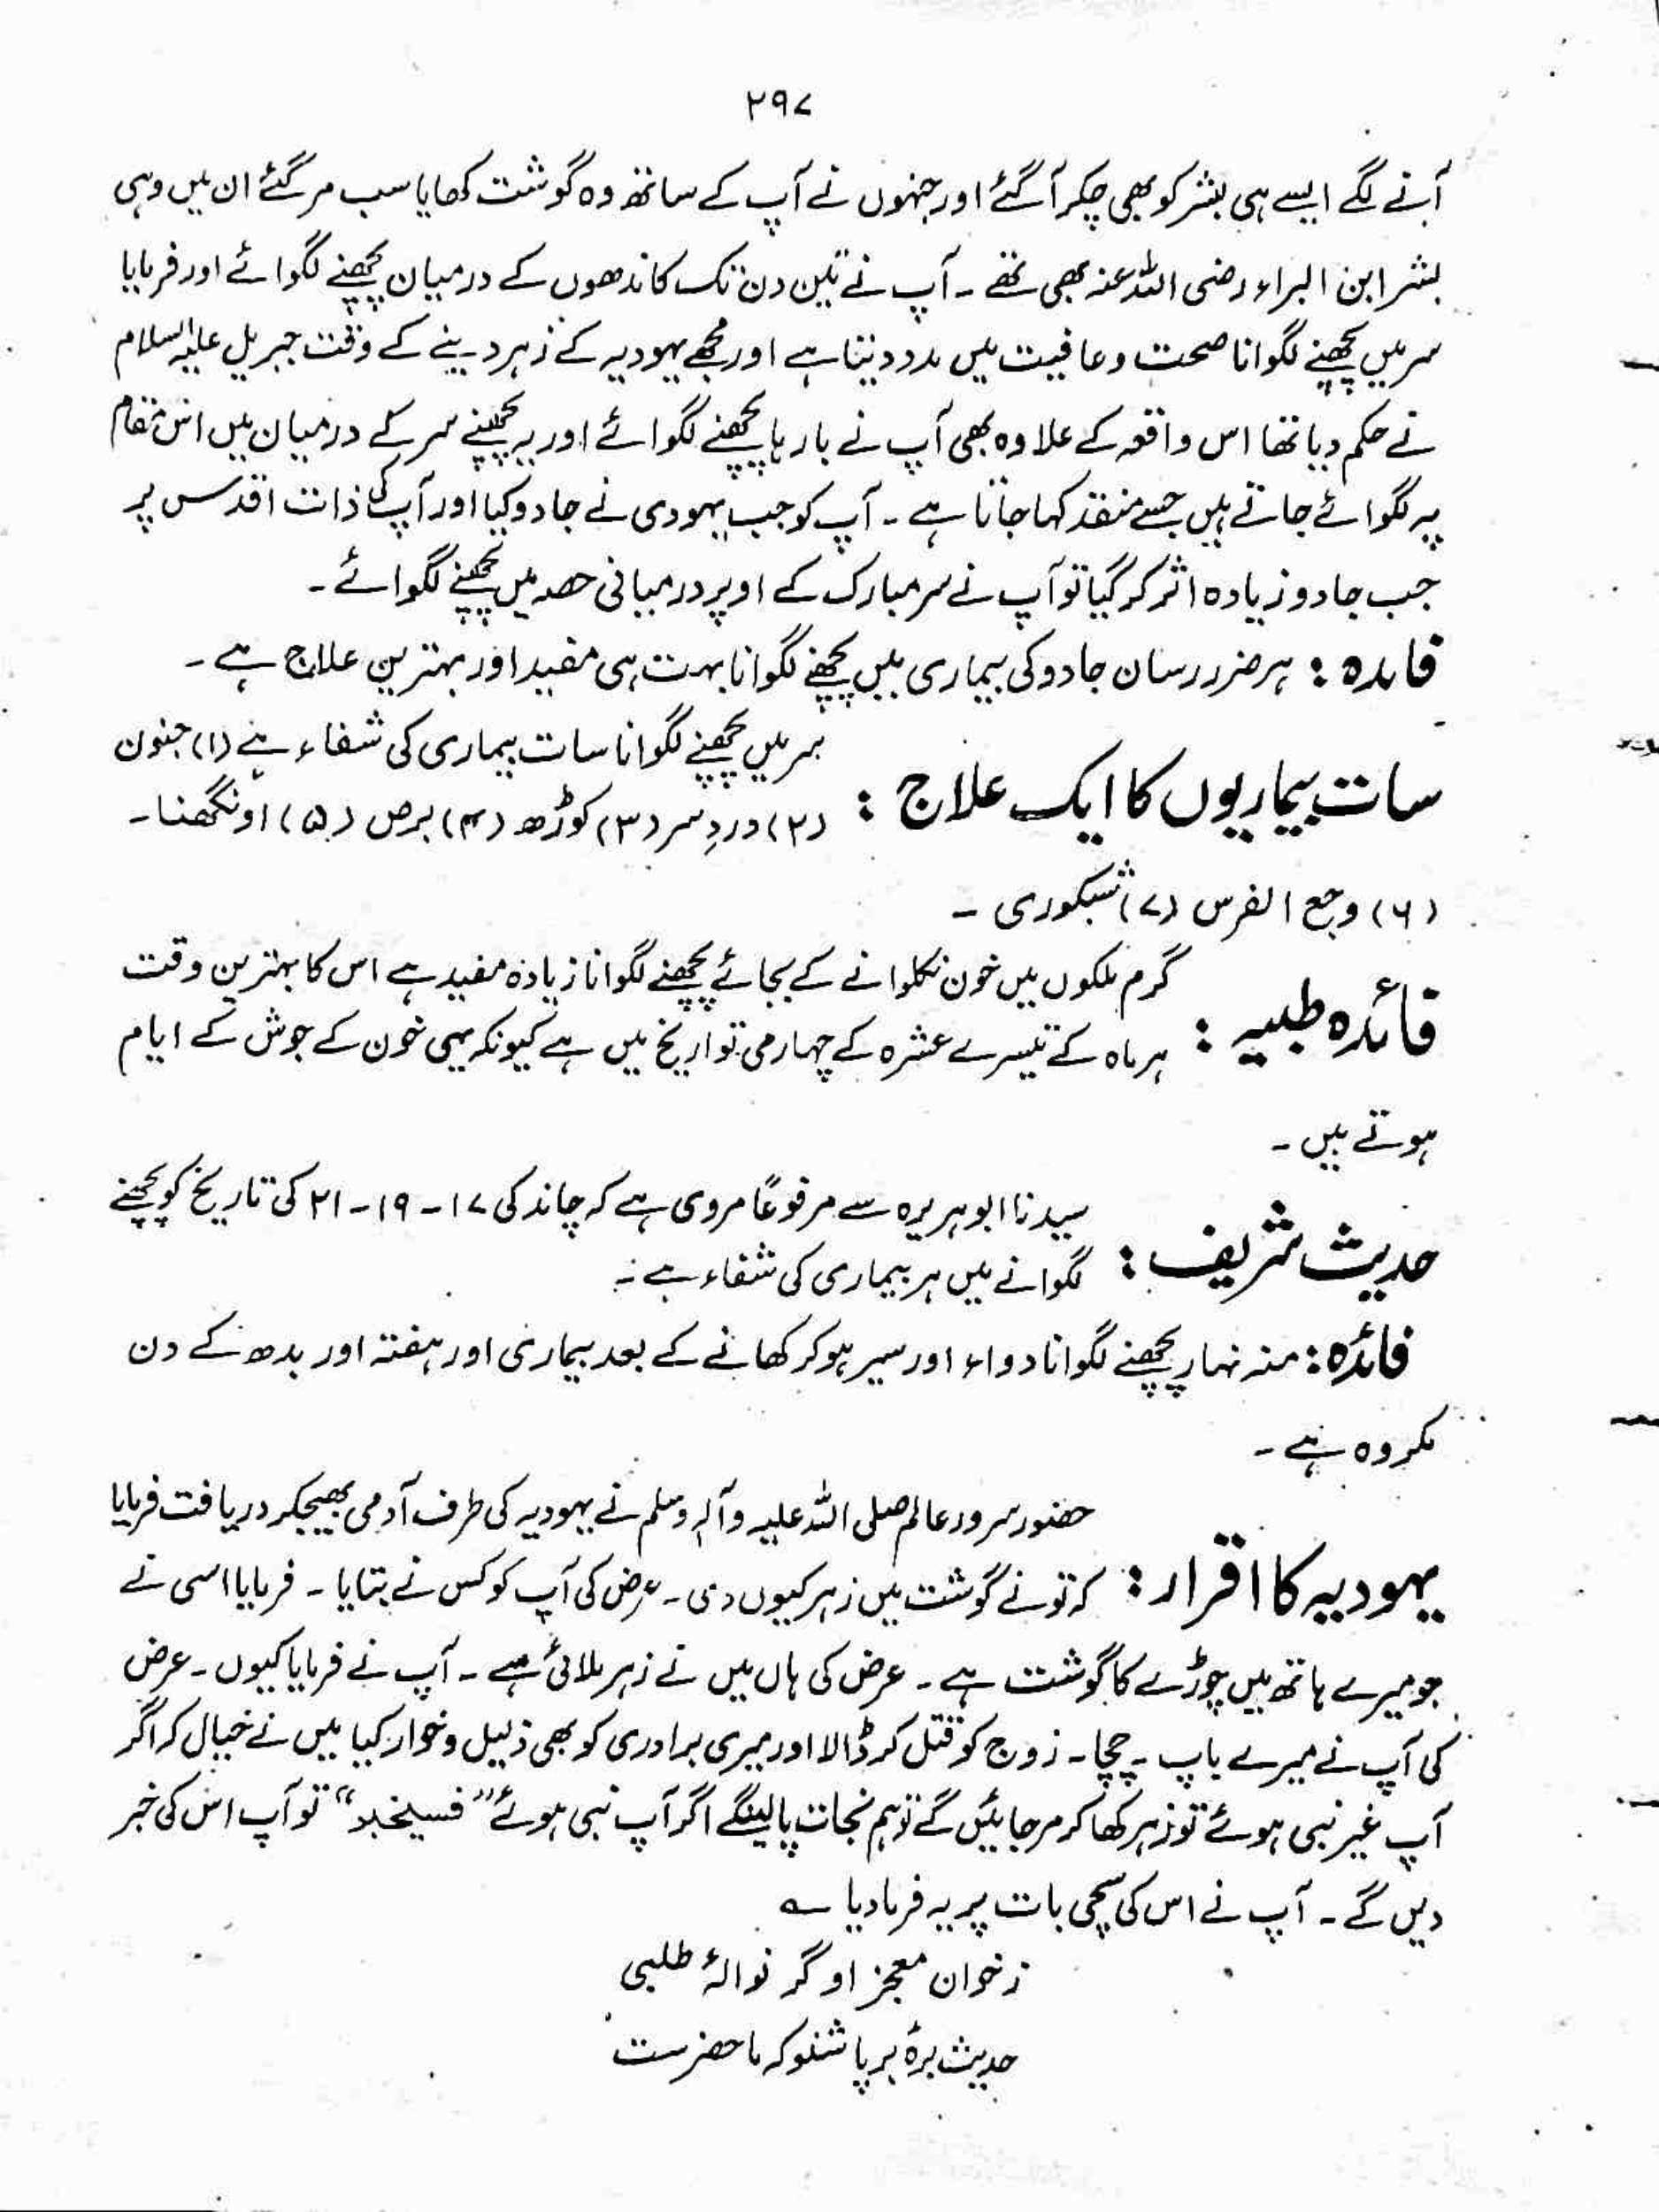 ۲۹۷
آنے لگے ایسے ہی بشر کو بھی چکر آ گئے اور جنہوں نے آپ کے ساتھ وہ گوشت کھایا سب مر گئے ان میں وہی
بشر ابن البراء رضی اللہ عنہ بھی تھے ۔ آپ نے تین دن تک کاندھوں کے درمیان پچھنے لگوائے اور فرمایا
سر میں پچھنے لگوانا صحت و عافیت میں مدد دیتا ہے اور مجھے یہودیہ کے زہر دینے کے وقت جبریل علیہ السلام
نے حکم دیا تھا اس واقعہ کے علاوہ بھی آپ نے بار ہا پچھنے لگوائے اور یہ پچھنے سر کے درمیان میں اس مقام
پر لگوائے جاتے ہیں جسے منقذ کہا جاتا ہے ۔ آپ کو جب یہودی نے جادو کیا اور آپ کی ذات اقدس پر
جب جادو زیادہ اثر کر گیا تو آپ نے سر مبارک کے اوپر درمیانی حصہ میں پچھنے لگوائے ۔
فائدہ : ہر ضرر رسان جادو کی بیماری میں پچھنے لگوانا بہت ہی مفید اور بہترین علاج ہے ۔
سات بیماریوں کا ایک علاج : سر میں پچھنے لگوانا سات بیماری کی شفاء ہے (۱) جنون
(۲) دردِ سر (۳) کوڑھ (۴) برص (۵) اونگھنا ۔
(۶) وجع الفرس (۷) شبکوری ۔
فائدہ طبیہ : گرم ملکوں میں خون نکلوانے کے بجائے پچھنے لگوانا زیادہ مفید ہے اس کا بہترین وقت
ہر ماہ کے تیسرے عشرہ کے چہارمی تواریخ میں ہے کیونکہ یہی خون کے جوش کے ایام
ہوتے ہیں ۔
حدیث شریف : سیدنا ابوہریرہ سے مرفوعًا مروی ہے کہ چاند کی ۱۷ - ۱۹ - ۲۱ کی تاریخ کو پچھنے
لگوانے میں ہر بیماری کی شفاء ہے ۔
فائدہ : منہ نہار پچھنے لگوانا دواء اور سیر ہو کر کھانے کے بعد بیماری اور ہفتہ اور بدھ کے دن
مکروہ ہے ۔
یہودیہ کا اقرار : حضور سرور عالم صلی اللہ علیہ وآلہ وسلم نے یہودیہ کی طرف آدمی بھیجکر دریافت فرمایا
کہ تو نے گوشت میں زہر کیوں دی ۔ عرض کی آپ کو کس نے بتایا ۔ فرمایا اسی نے
جو میرے ہاتھ میں چوڑے کا گوشت ہے ۔ عرض کی ہاں میں نے زہر ملائی ہے ۔ آپ نے فرمایا کیوں ۔ عرض
کی آپ نے میرے باپ ۔ چچا ۔ زوج کو قتل کر ڈالا اور میری برادری کو بھی ذلیل و خوار کیا میں نے خیال کہ اگر
آپ غیر نبی ہوئے تو زہر کھا کر مر جائیں گے تو ہم نجات پا لینگے اگر آپ نبی ہوئے " " تو آپ اس کی خبر
دیں گے ۔ آپ نے اس کی سچی بات پر یہ فرما دیا ؎
زخوان معجز او گر نوالۂ طلبی
حدیث برۂ بریا شنو کہ ماحضرست